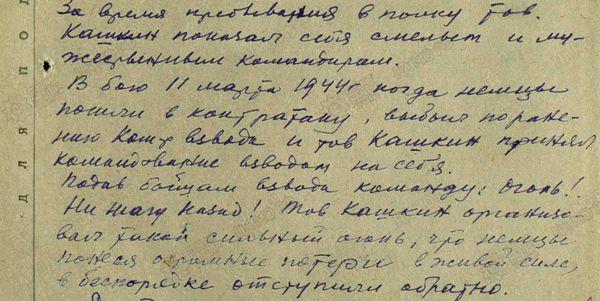 За время пребывания в полку тов.
Кашкин показал себя смелым и му-
жественным командиром.
В бою 11 марта 1944г когда немцы
пошли в контратаку, выбыл по ране-
нию Ком-р взвода и тов Кашкин принял
командование взводом на себя.
Подав бойцам взвода команду: огонь!
Ни шагу назад! Тов Кашкин организо-
вал такой сильный огонь, что немцы
понеся огромные потери в живой силе,
в беспорядке отступили обратно.
для под